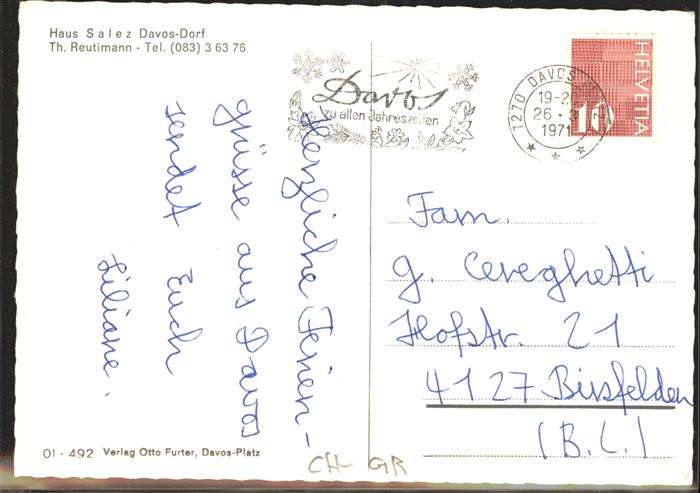 Haus Salez Davos-Dorf
Th. Reutimann - Tel. (083) 3 63 76
Herzliche Ferien-
grüsse aus Davos
sendet Euch
Liliane.
Davos
zu allen Jahreszeiten
7270 DAVOS
19-2
26
1971
HELVETIA
10
Fam.
G. Cereghetti
Hofstr. 21
4127 Birsfelden
(B.L.)
01 - 492 Verlag Otto Furter, Davos-Platz
CH- GR